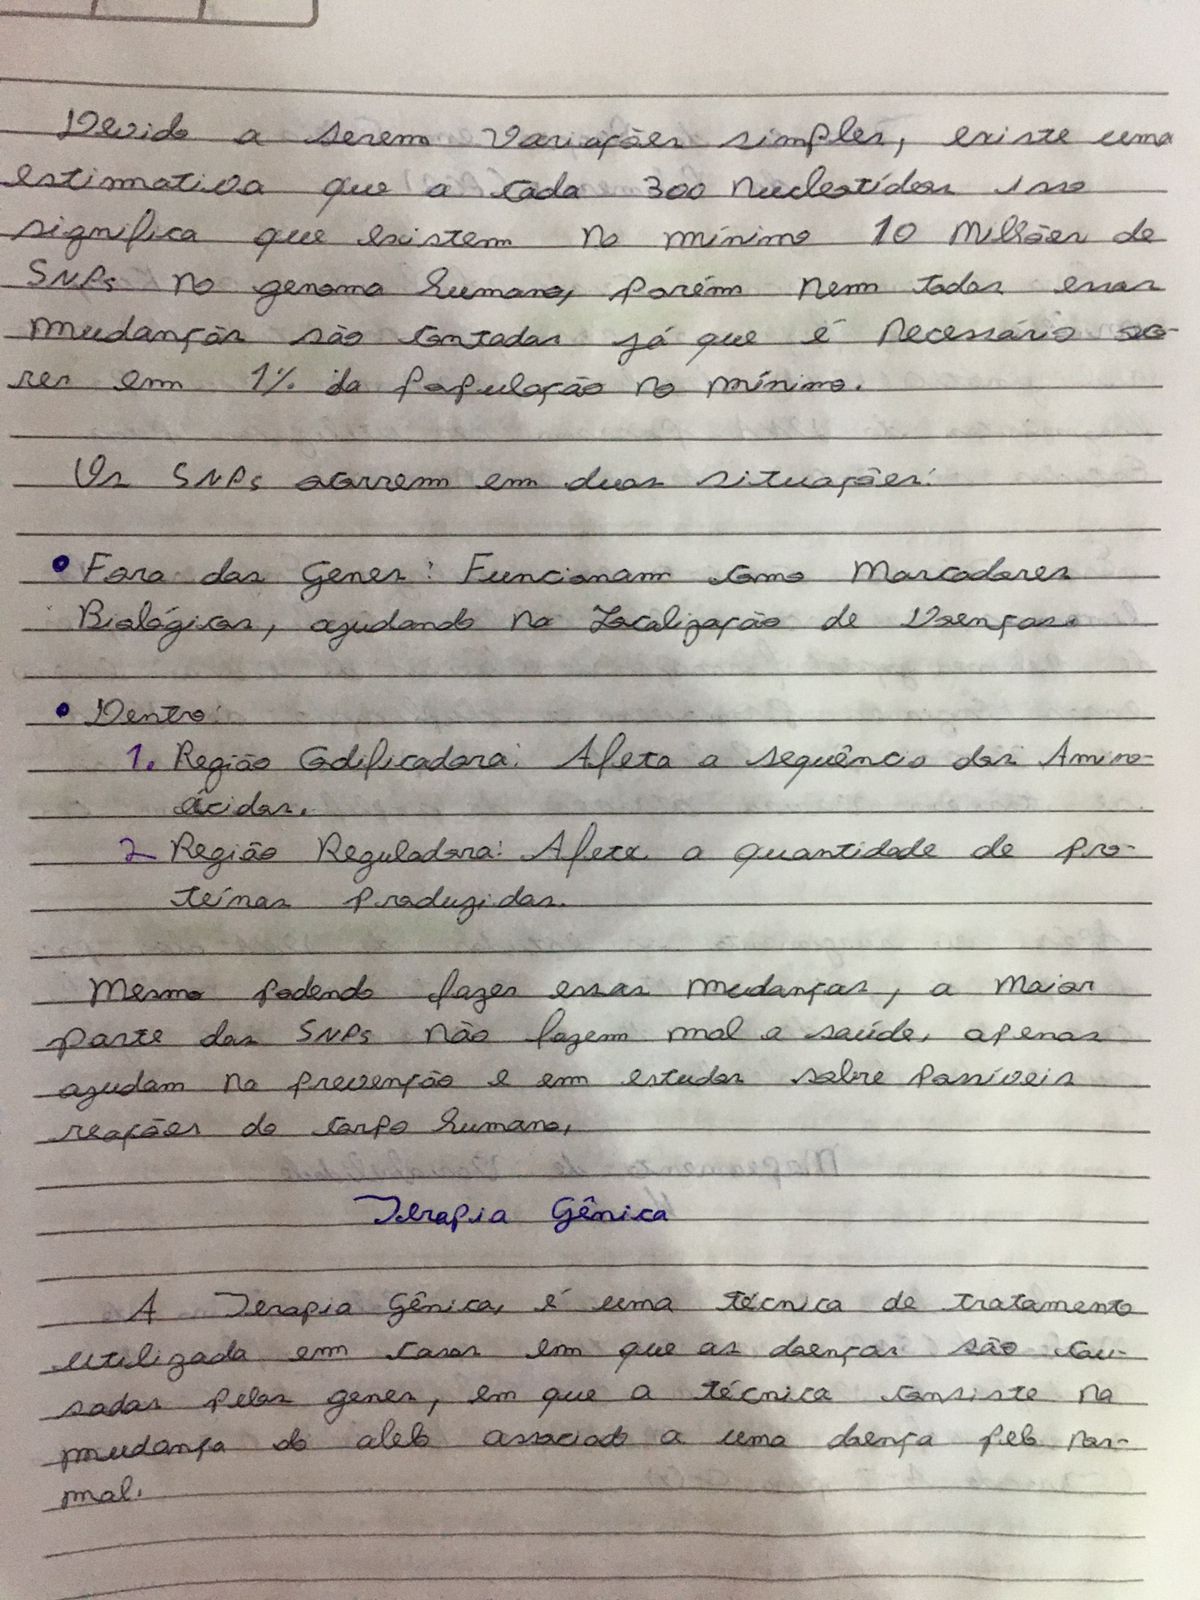 Devido a serem Variações simples, existe uma
estimativa que a cada 300 nucleotídeos isso
significa que existem no mínimo 10 Milhões de
SNPs no genoma humano, porém nem todas essas
mudanças são contadas já que é necessário oco-
rer em 1% da população no mínimo.
Os SNPs ocorrem em duas situações:
• Fora dos Genes: Funcionam como Marcadores
Biológicos, ajudando na Localização de Doenças.
• Dentro:
1. Região Codificadora: Afeta a sequência dos Amino-
ácidos.
2 Região Reguladora: Afeta a quantidade de pro-
teínas produzidas.
Mesmo podendo fazer essas mudanças, a maior
parte dos SNPs não fazem mal a saúde, apenas
ajudam na prevenção e em estudos sobre possíveis
reações do corpo humano,
Terapia Gênica
A Terapia Gênica, é uma técnica de tratamento
utilizada em casos em que as doenças são cau-
sadas pelos genes, em que a técnica consiste na
mudança do alelo associado a uma doença pelo nor-
mal.